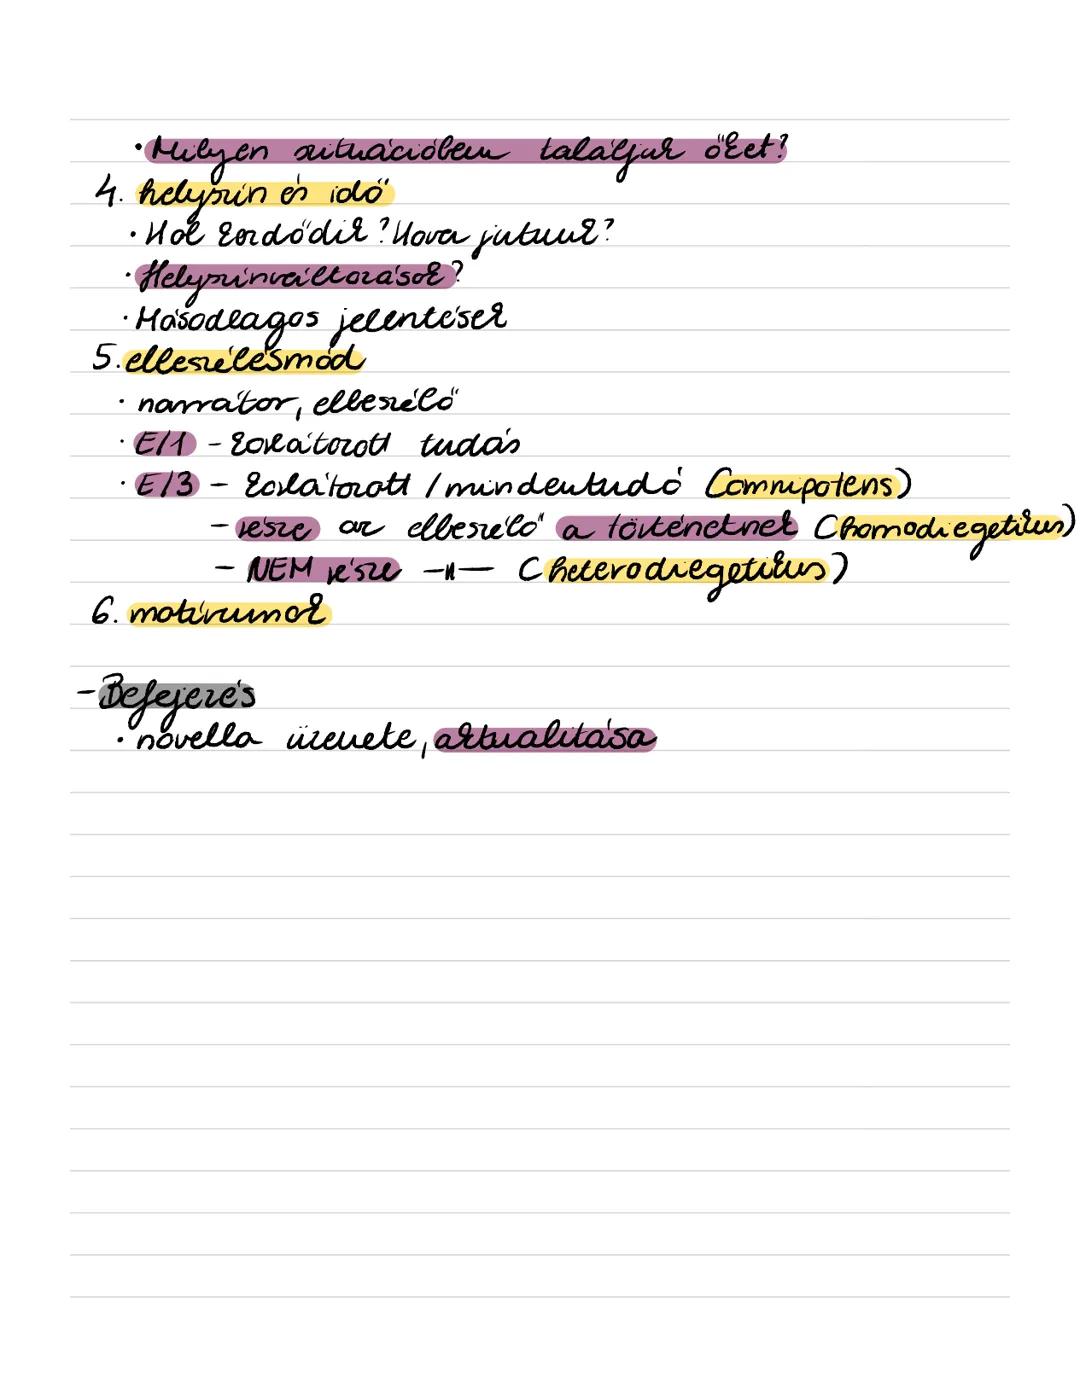 • Milyen szituációban találjuk őket?
4. helyszín és idő
• Hol kezdődik? Hova jutunk?
• Helyszínváltozások?
• Másodlagos jelentések
5. elbeszélésmód
• narrátor, elbeszélő
• E/1 - korlátozott tudás
• E/3 - korlátozott / mindentudó (omnipotens)
- része az elbeszélő a történetnek (homodiegetikus)
- NEM része -॥- (heterodiegetikus)
6. motívumok
- Befejezés
• novella üzenete, aktualitása